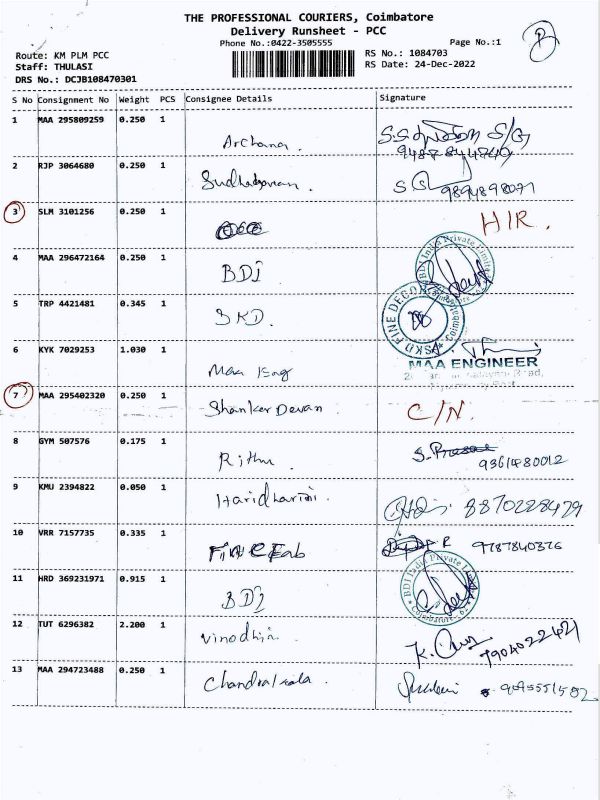 THE PROFESSIONAL COURIERS, Coimbatore
Delivery Runsheet - PCC
Phone No.:0422-3505555
Page No.:1
Route: KM PLM PCC
Staff: THULASI
DRS No.: DCJB108470301
RS No.: 1084703
RS Date: 24-Dec-2022
S No Consignment No Weight PCS Consignee Details Signature
1 MAA 295809259 0.250 1 Archana.
2 RJP 3064680 0.250 1 9894898071
3 SLM 3101256 0.250 1 H/R.
4 MAA 296472164 0.250 1 BDI
BDI India Private Limited
Coimbatore
5 TRP 4421481 0.345 1 SKD.
SKD FINE DECOR
Coimbatore
6 KYK 7029253 1.030 1 Maa Eng
MAA ENGINEER
7 MAA 295402320 0.250 1 Shanker Devan C/N.
8 GYM 507576 0.175 1 Rithu. 9361480012
9 KMU 2394822 0.050 1 8870228479
10 VRR 7157735 0.335 1 Fine Fab 9787840376
11 HRD 369231971 0.915 1 BDI
BDI India Private
Coimbatore
12 TUT 6296382 2.200 1 Vinodhin. 7904022421
13 MAA 294723488 0.250 1 Chandrakala.